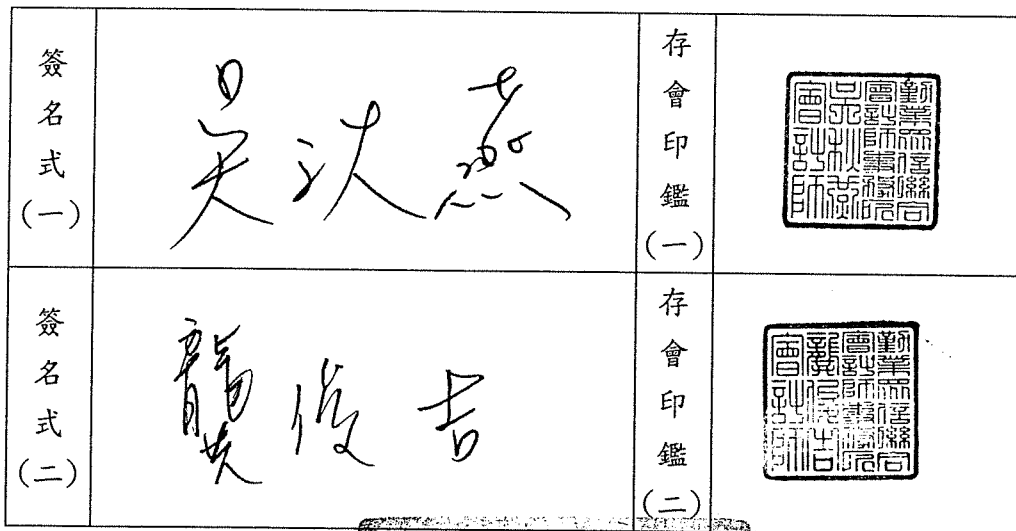 簽名式(一)
吳秋燕
存會印鑑(一)
勤業眾信聯合
會計師事務所
吳秋燕
會計師
簽名式(二)
龔俊吉
存會印鑑(二)
勤業眾信聯合
會計師事務所
龔俊吉
會計師